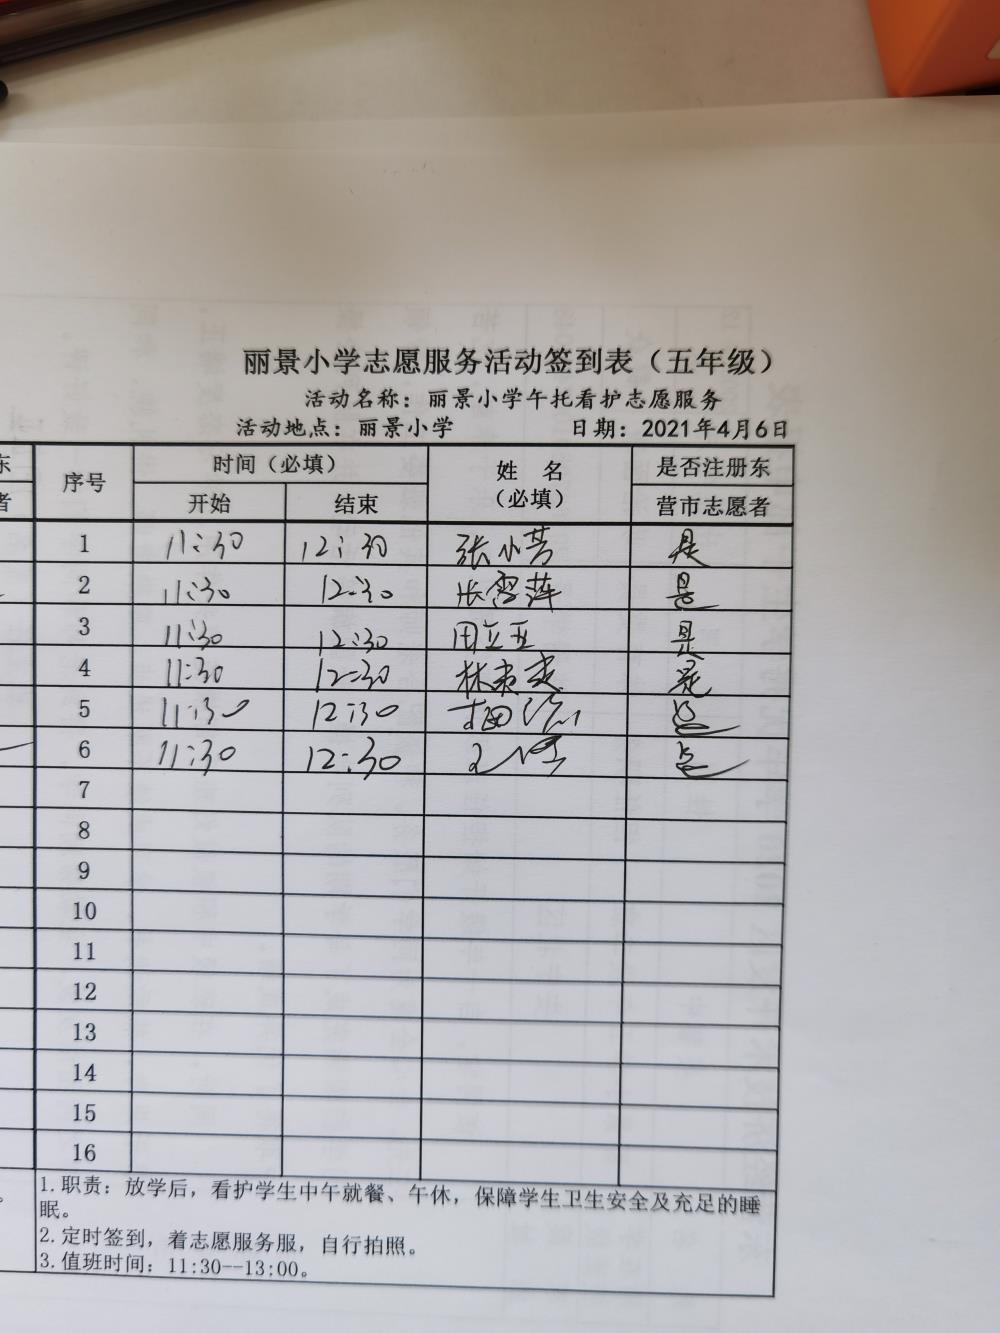 丽景小学志愿服务活动签到表（五年级）
活动名称：丽景小学午托看护志愿服务
活动地点：丽景小学 日期：2021年4月6日
东 序号 时间（必填） 姓 名 是否注册东
者 开始 结束 （必填） 营市志愿者
1 11:30 12:30 张小芳 是
2 11:30 12:30 张雪萍 是
3 11:30 12:30 田立亚 是
4 11:30 12:30 林 是
5 11:30 12:30 是
6 11:30 12:30 是
7
8
9
10
11
12
13
14
15
16
1.职责：放学后，看护学生中午就餐、午休，保障学生卫生安全及充足的睡
眠。
2.定时签到，着志愿服务服，自行拍照。
3.值班时间：11:30--13:00。